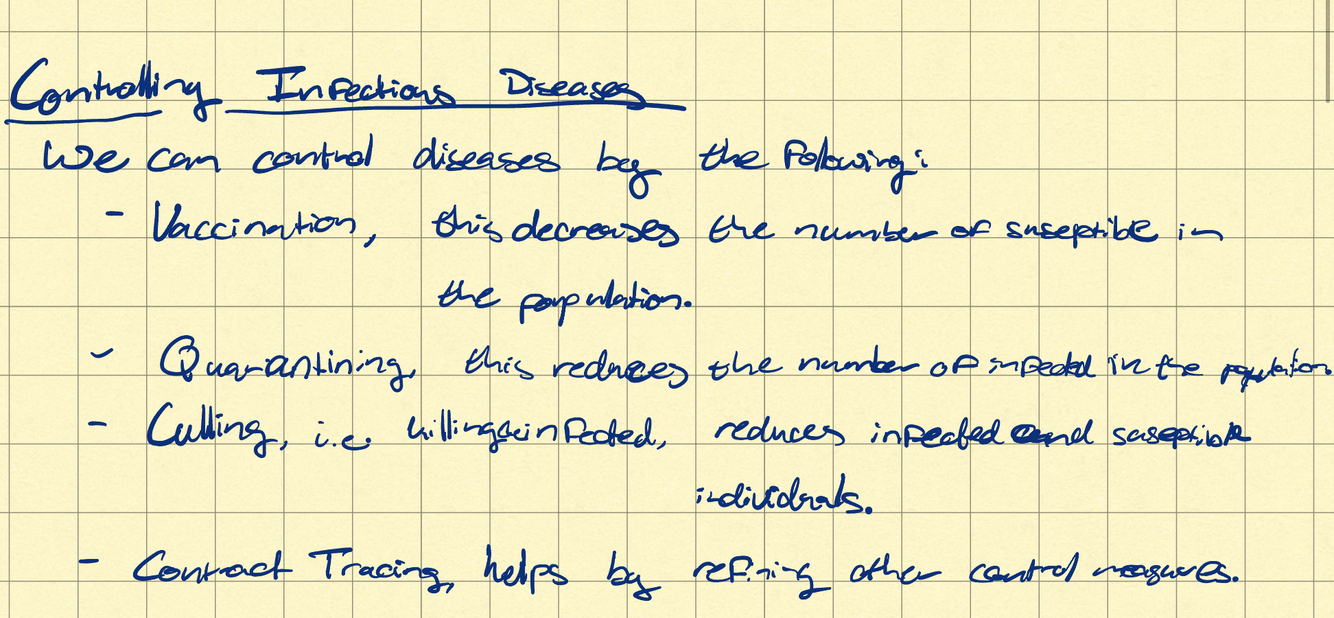 Controlling Infectious Diseases
We can control diseases by the following:
- Vaccination, this decreases the number of suseptible in
the population.
- Quarantining, this reduces the number of infected in the population.
- Culling, i.e. killing infected, reduces infected and suseptible
individuals.
- Contract Tracing, helps by refining other control measures.